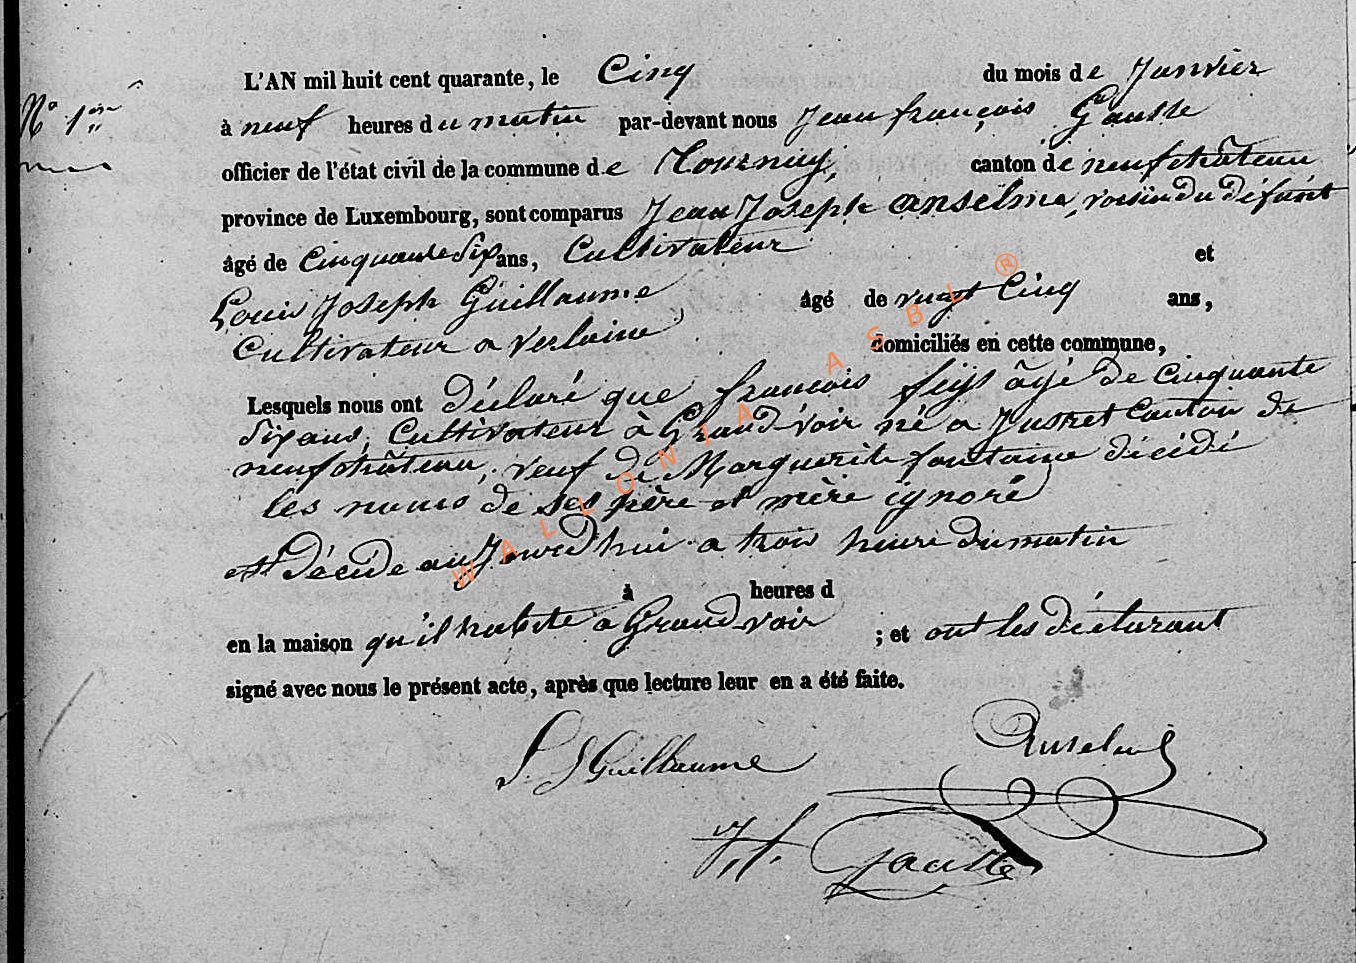 L'AN mil huit cent quarante, le Cinq du mois de Janvier
N° 1er
à neuf heures du matin par-devant nous Jean françois Gausse
officier de l'état civil de la commune de Tournay, canton de neufchâteau
province de Luxembourg, sont comparus Jean Joseph anselme, voisin du défunt
âgé de Cinquante Six ans, Cultivateur et
Louis Joseph Guillaume âgé de vingt Cinq ans,
Cultivateur a Verlaine, domiciliés en cette commune,
Lesquels nous ont déclaré que francois âgé de Cinquante
Six ans, Cultivateur à Grand-voir né a Juseret Canton de
neufchâteau, veuf de Marguerite fontaine décédé
les noms de ses père et mère ignoré
est Décédé aujourd'hui a trois heure du matin
à heures d
en la maison qu'il habite a Grand-voir ; et ont les déclarant
signé avec nous le présent acte, après que lecture leur en a été faite.
L. J Guillaume Anselme
J. f. Gausse
WALLONIA ASBL ®